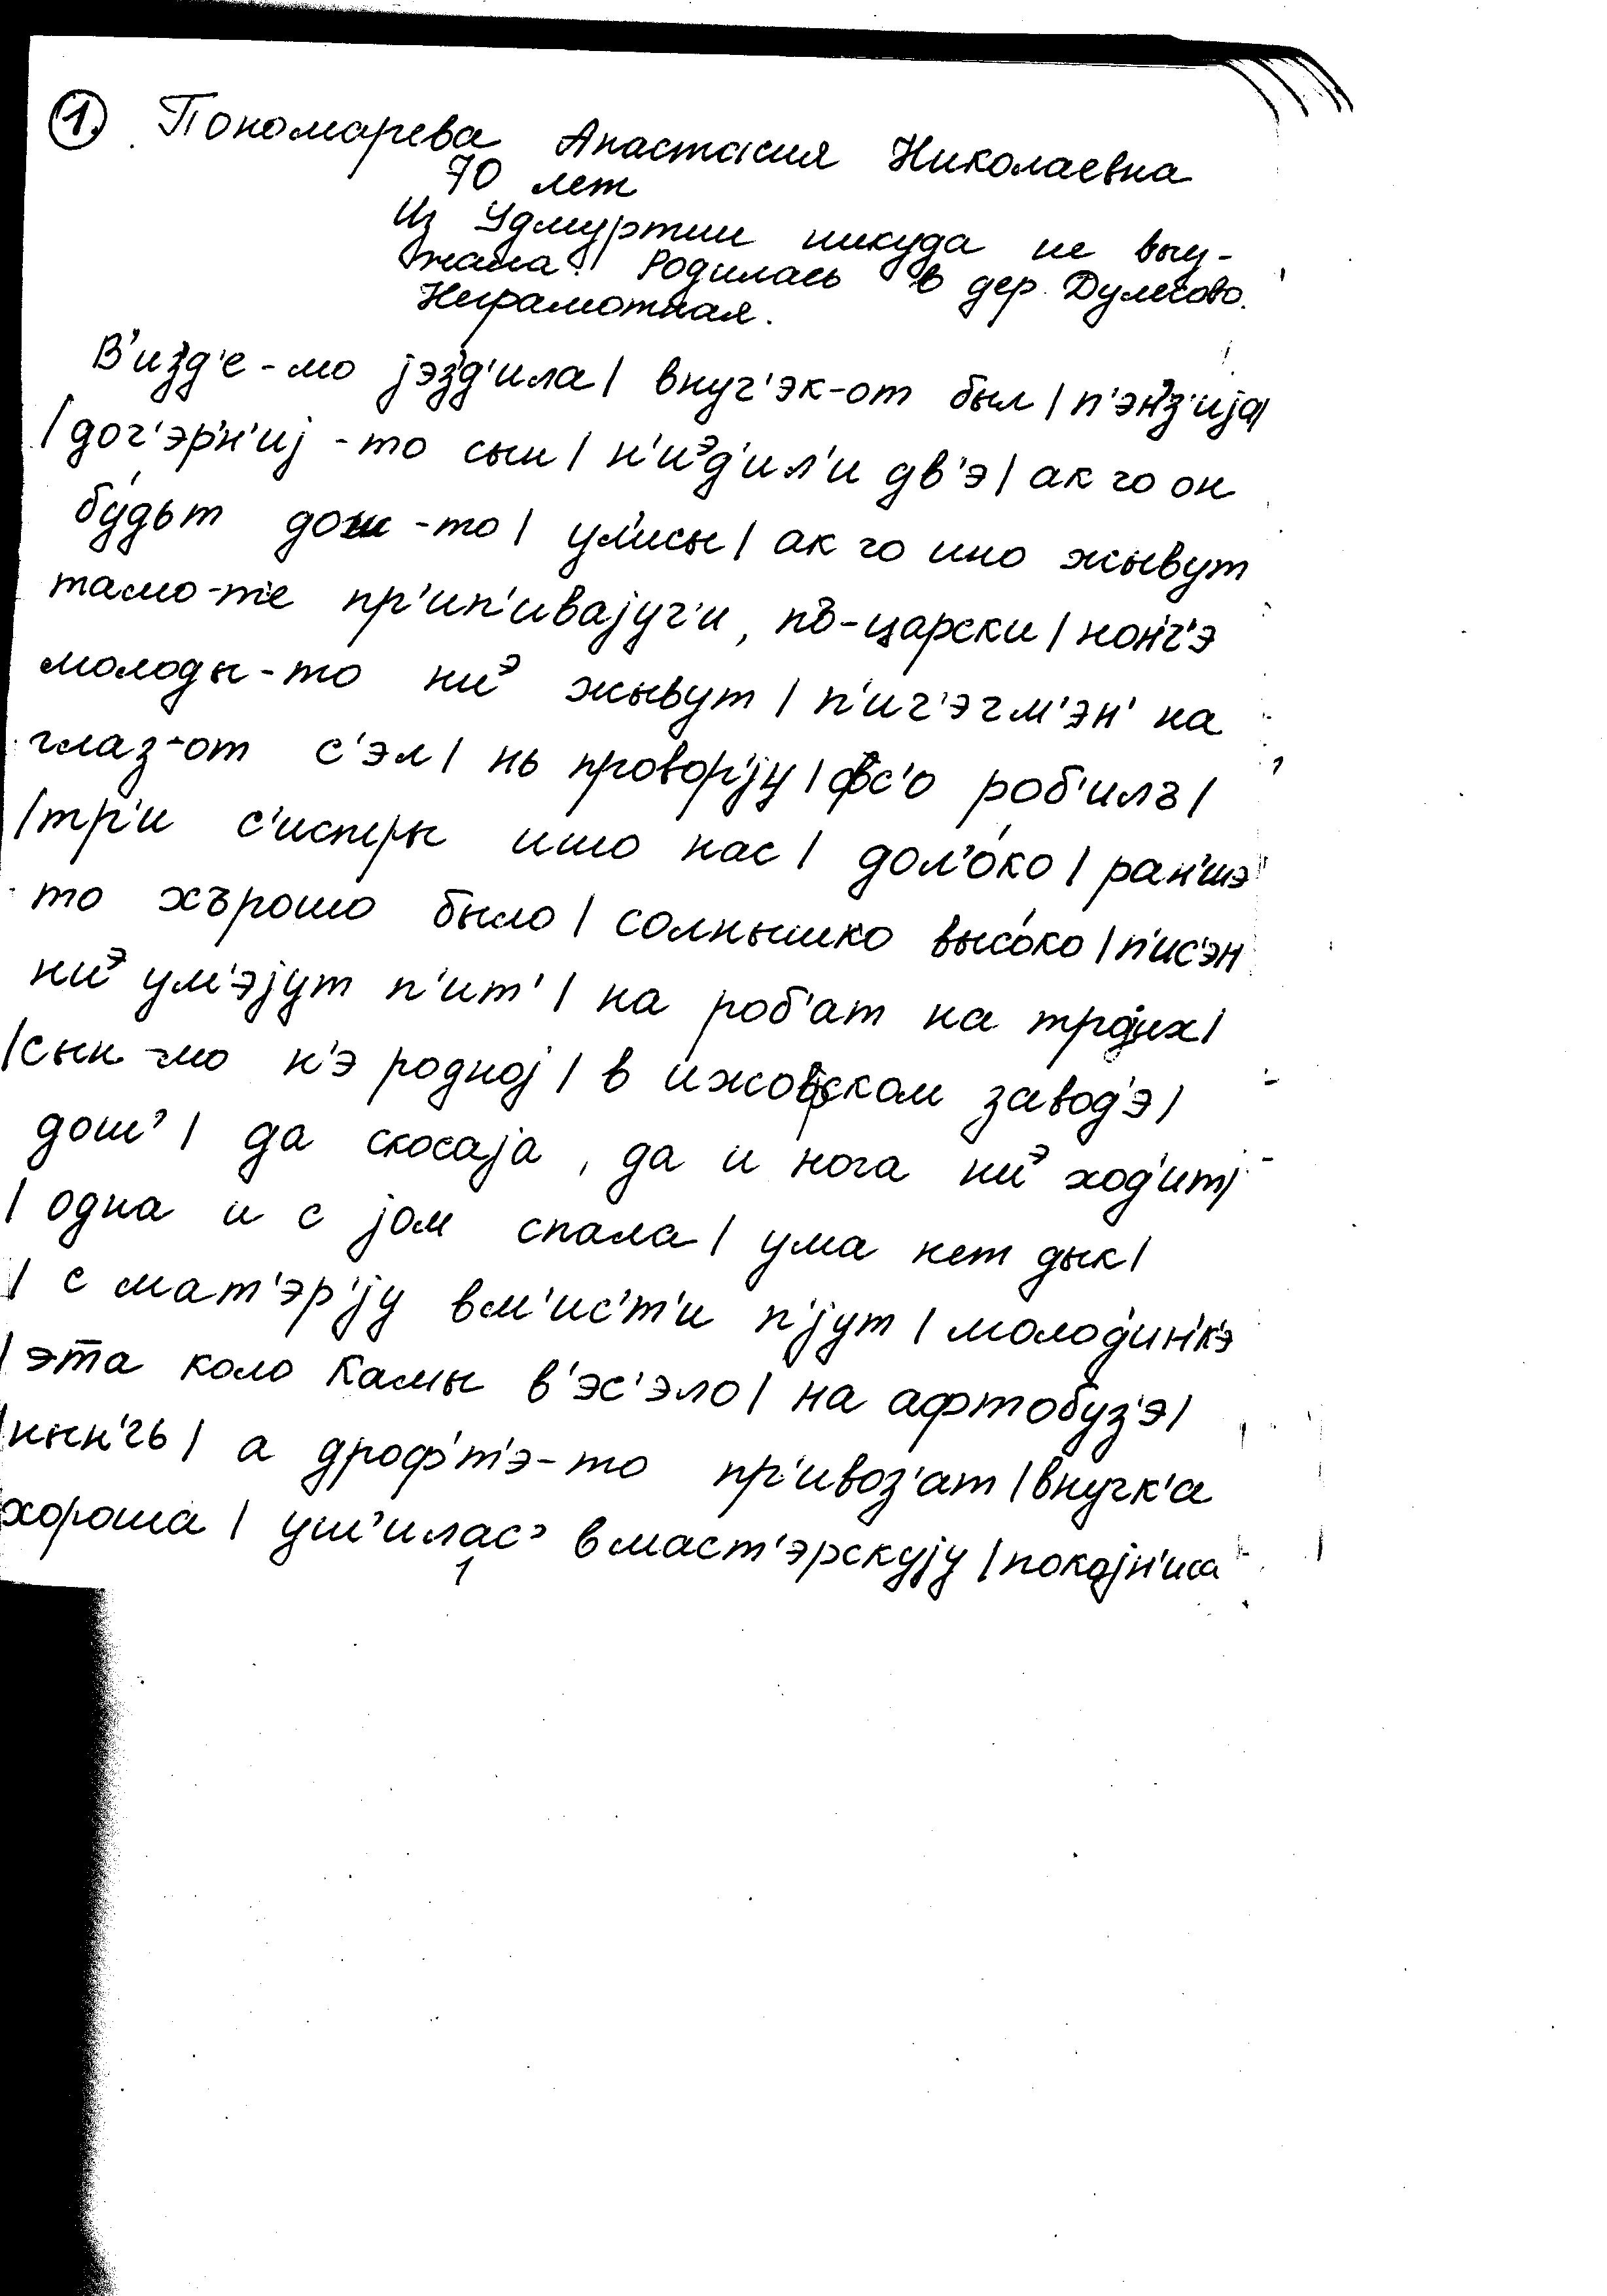 1. Пономарева Анастасия Николаевна
70 лет
Из Удмуртии никуда не выез-
жала. Родилась в дер. Дулесово.
Неграмотная.
В'из'д'е-мо jэз'д'ила| внуч'эк-от был| п'эн'з'иjа|
|доч'эр'н'иj-то сын| н'иэд'ил'и дв'э| ак чо он
бу́дьт дош-то| ул'исы| ак чо ино жывут
тамо-т'е пр'ип'иваjуч'и, пъ-царски| нон'ч'э
молоды-то ниэ жывут| п'ич'эчм'эн' на
глаз-от с'эл| нь провор'jу| фс'о роб'илъ|
|тр'и с'истры ишо нас| дол'о́ко| ран'шэ
то хърошо было| солнышко высо́ко| п'ис'эн
ниэ ум'эjут п'ит'| на роб'ат на троjих|
|сын-то н'э родноj| в ижофском завод'э|
дош'| да скосаjа, да и нога ниэ ход'ит|
|одна и с jом спала| ума нет дык|
|с мат'эр'jу вм'ис'т'и п'jут| молод'ин'к'э
|эта коло Камы в'эс'эло| на афтобуз'э|
|нын'чь| а дроф'т'э-то пр'ивоз'ат| внучк'а
хороша| уш'илас' в маст'эрскуjу| покоjн'иса
1